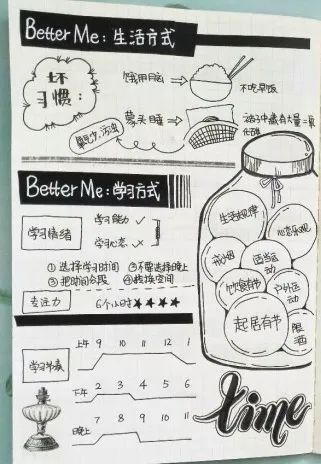 Better Me: 生活方式
坏
习惯:
饿用脑
不吃早饭
蒙头睡
被子中藏有大量二氧
化碳
Better Me: 学习方式
学习情绪
学习能力 ✓
学习心态
生活规律
心态乐观
戒烟
适当运
动
饮食有节
户外运
动
起居有节
限
酒
① 选择学习时间 ②不要选择晚上
③ 把时间分段 ④转换空间
专注力
6个小时 ★★★★
学习节奏
上午 9 10 11 12 1
下午 2 3 4 5 6
晚上 7 8 9 10 11
time